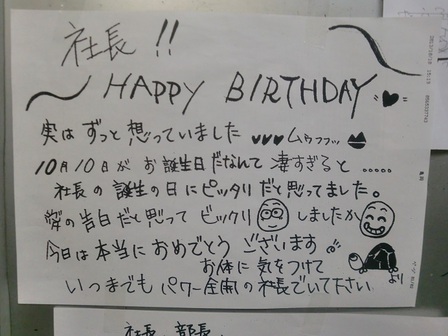 社長!!
〜HAPPY BIRTHDAY〜♥
実はずっと想っていました ♥♥♥ムゥフフッ
10月10日がお誕生日だなんて凄すぎると.....
社長の誕生の日にピッタリだと思ってました。
愛の告白だと思ってビックリしましたか
今日は本当におめでとうございます。
お体に気をつけて より
いつまでもパワー全開の社長でいて下さい
社長、部長、